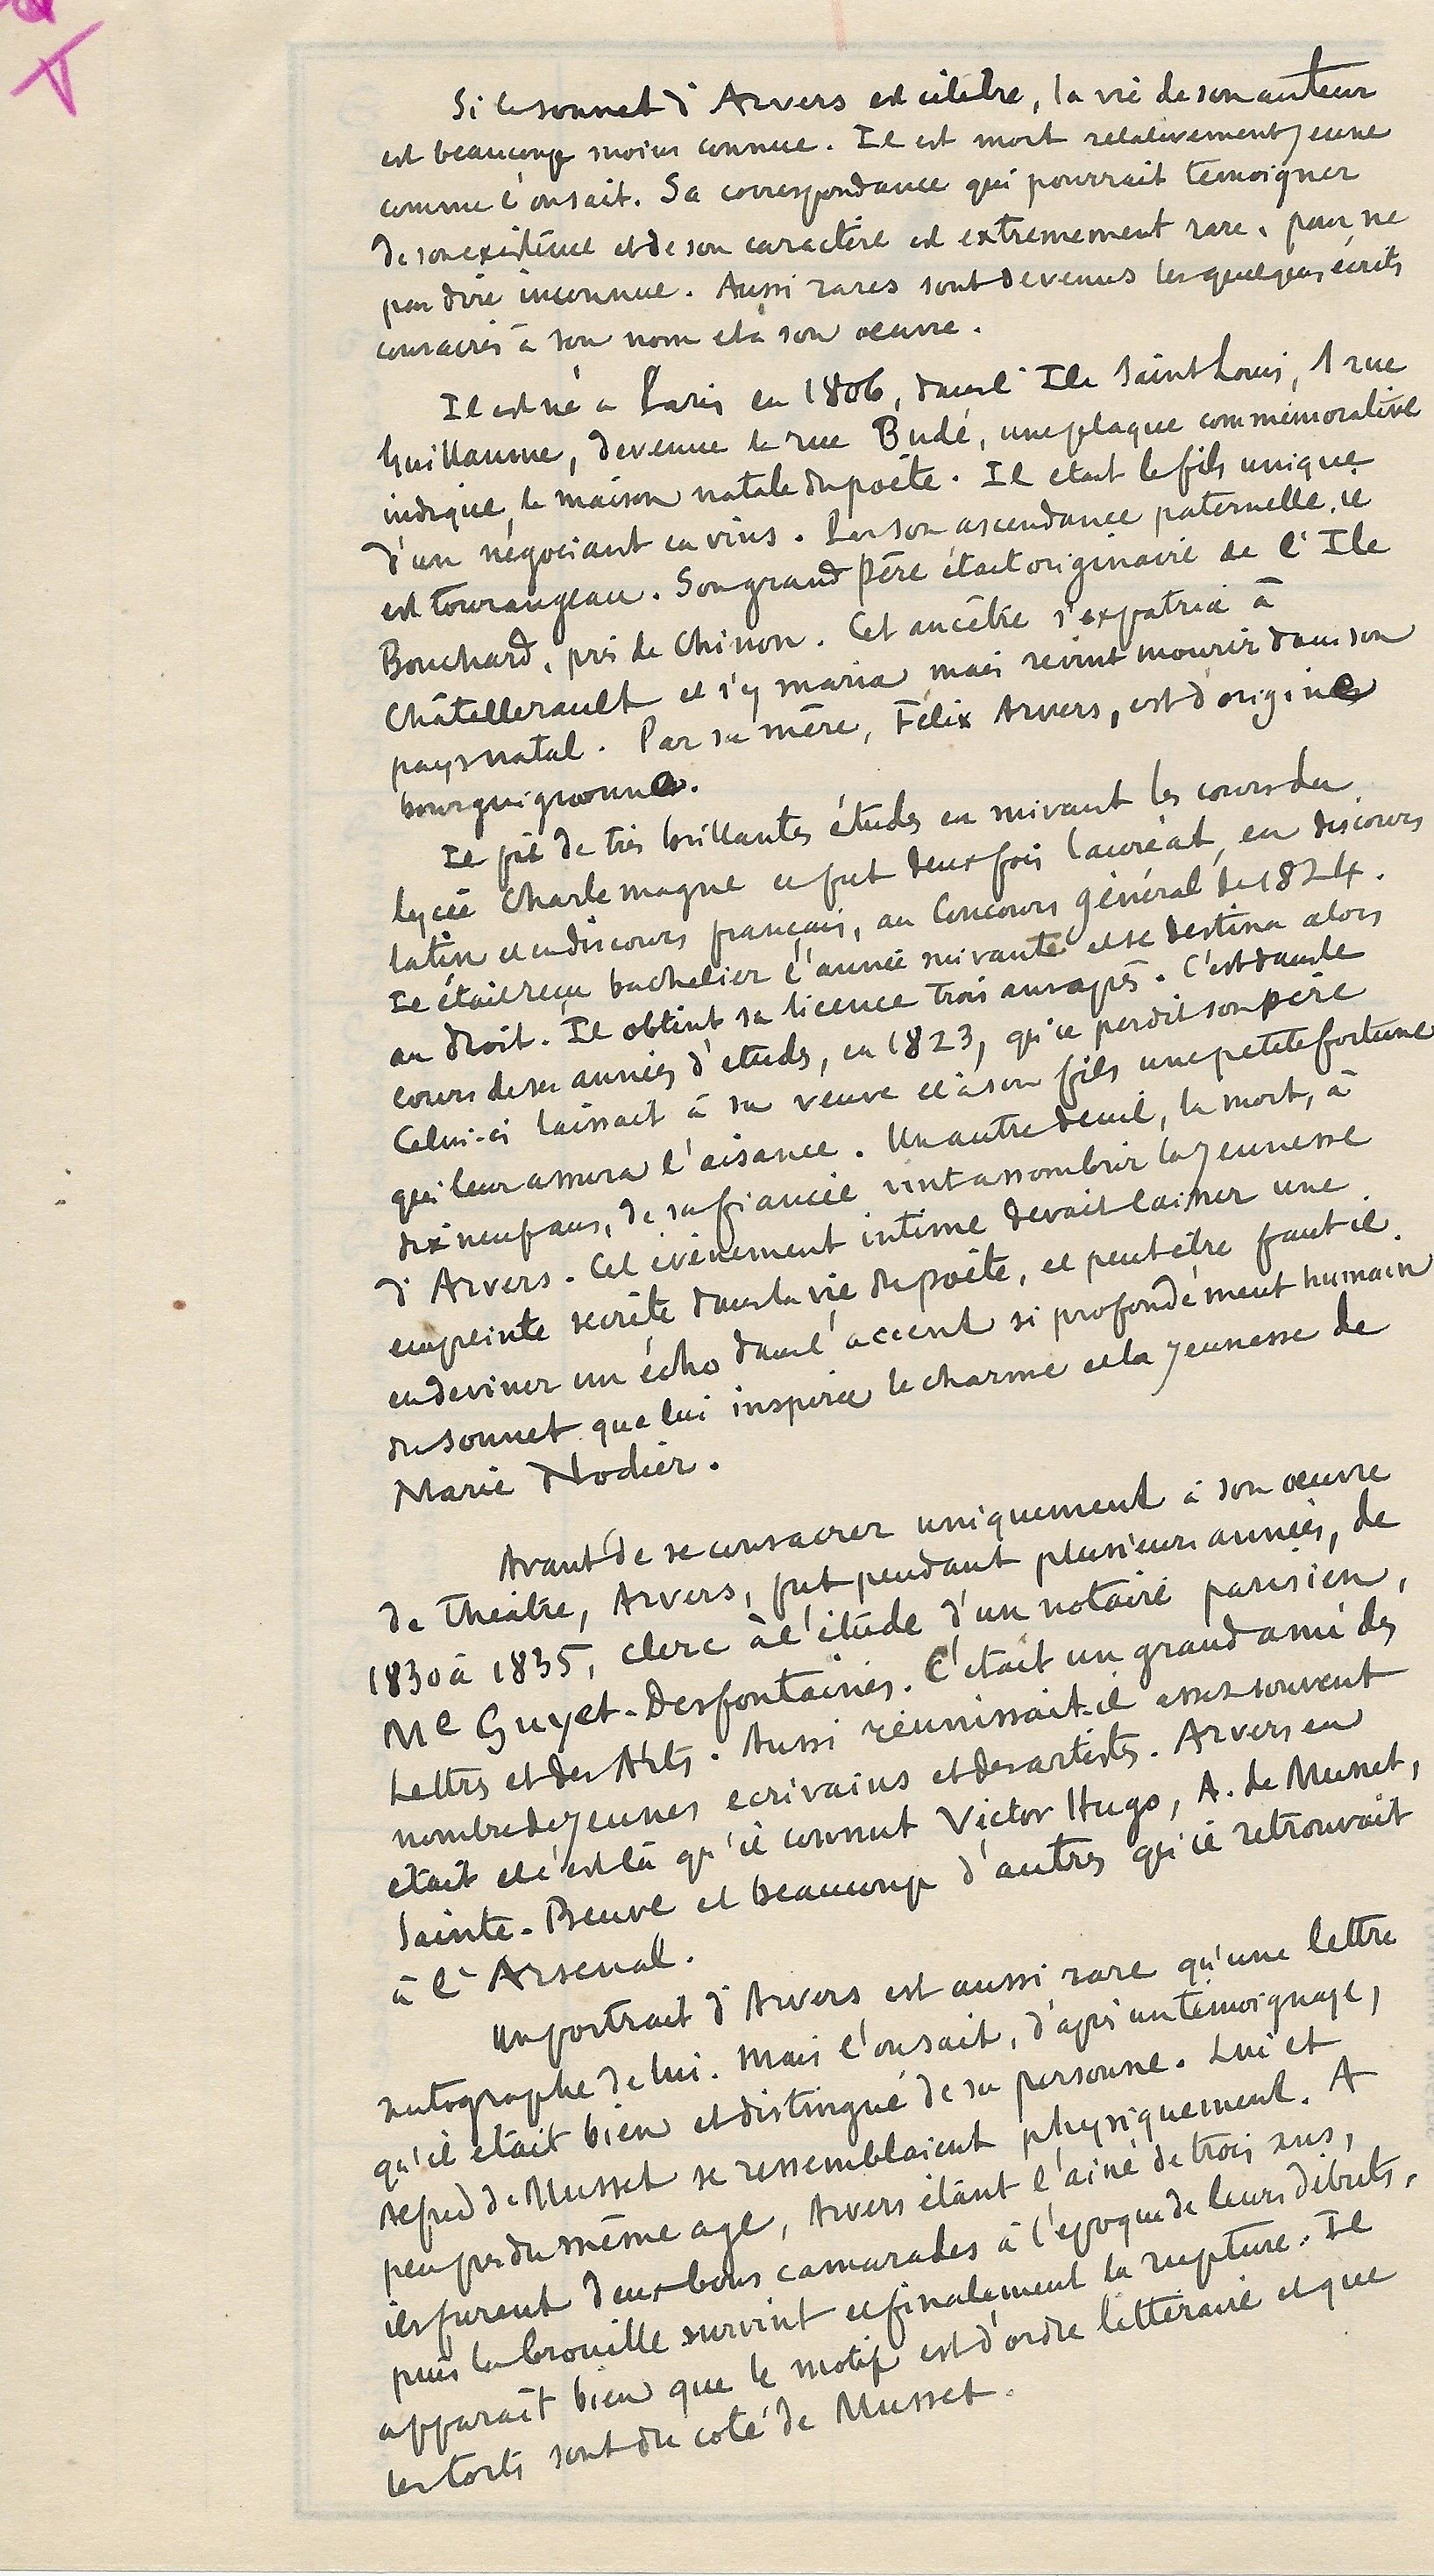 Si le sonnet d'Arvers est célèbre, la vie de son auteur
est beaucoup moins connue. Il est mort relativement jeune
comme l'on sait. Sa correspondance qui pourrait témoigner
de son existence et de son caractère est extremement rare, pour ne
pas dire inconnue. Aussi rares sont devenus les quelques écrits
consacrés à son nom et à son oeuvre.
Il est né à Paris en 1806, dans l'Ile Saint Louis, 1 rue
Guillaume, devenue la rue Budé, une plaque commémorative
indique la maison natale du poète. Il etait le fils unique
d'un négociant en vins. Par son ascendance paternelle, il
est tourangeau. Son grand père était originaire de l'Ile
Bouchard, près de Chinon. Cet ancêtre s'expatria à
Châtellerault et s'y maria mais revint mourir dans son
pays natal. Par sa mère, Félix Arvers, est d'origine
bourguignonne.
Il fit de très brillantes études en suivant les cours du
lycée Charlemagne et fut deux fois lauréat, en discours
latin et en discours français, au Concours général de 1824.
Il était reçu bachelier l'année suivante et se destina alors
au droit. Il obtint sa licence trois ans après. C'est dans le
cours de ses années d'etudes, en 1823, qu'il perdit son père
Celui-ci laissait à sa veuve et à son fils une petite fortune
qui leur assura l'aisance. Un autre deuil, la mort, à
dix neuf ans, de sa fiancée vint assombrir la jeunesse
d'Arvers. Cet évènement intime devait laisser une
empreinte secrète dans la vie du poète, et peut être faut il
en deviner un écho dans l'accent si profondément humain
du sonnet que lui inspira le charme et la jeunesse de
Marie Nodier.
Avant de se consacrer uniquement à son oeuvre
de théâtre, Arvers, fut pendant plusieurs années, de
1830 à 1835, clerc à l'étude d'un notaire parisien,
Me Guyet-Desfontaines. C'etait un grand ami des
Lettres et des Arts. Aussi réunissait-il assez souvent
nombre de jeunes ecrivains et des artistes. Arvers en
etait et c'est là qu'il connut Victor Hugo, A. de Musset,
Sainte-Beuve et beaucoup d'autres qu'il retrouvait
à l'Arsenal.
Un portrait d'Arvers est aussi rare qu'une lettre
autographe de lui. Mais l'on sait, d'après un témoignage,
qu'il etait bien et distingué de sa personne. Lui et
Alfred de Musset se ressemblaient physiquement. A
peu près du même age, Arvers étant l'ainé de trois ans,
ils furent deux bons camarades à l'epoque de leurs débuts,
puis la brouille survint et finalement la rupture. Il
apparaît bien que le motif est d'ordre littéraire et que
les torts sont du coté de Musset.